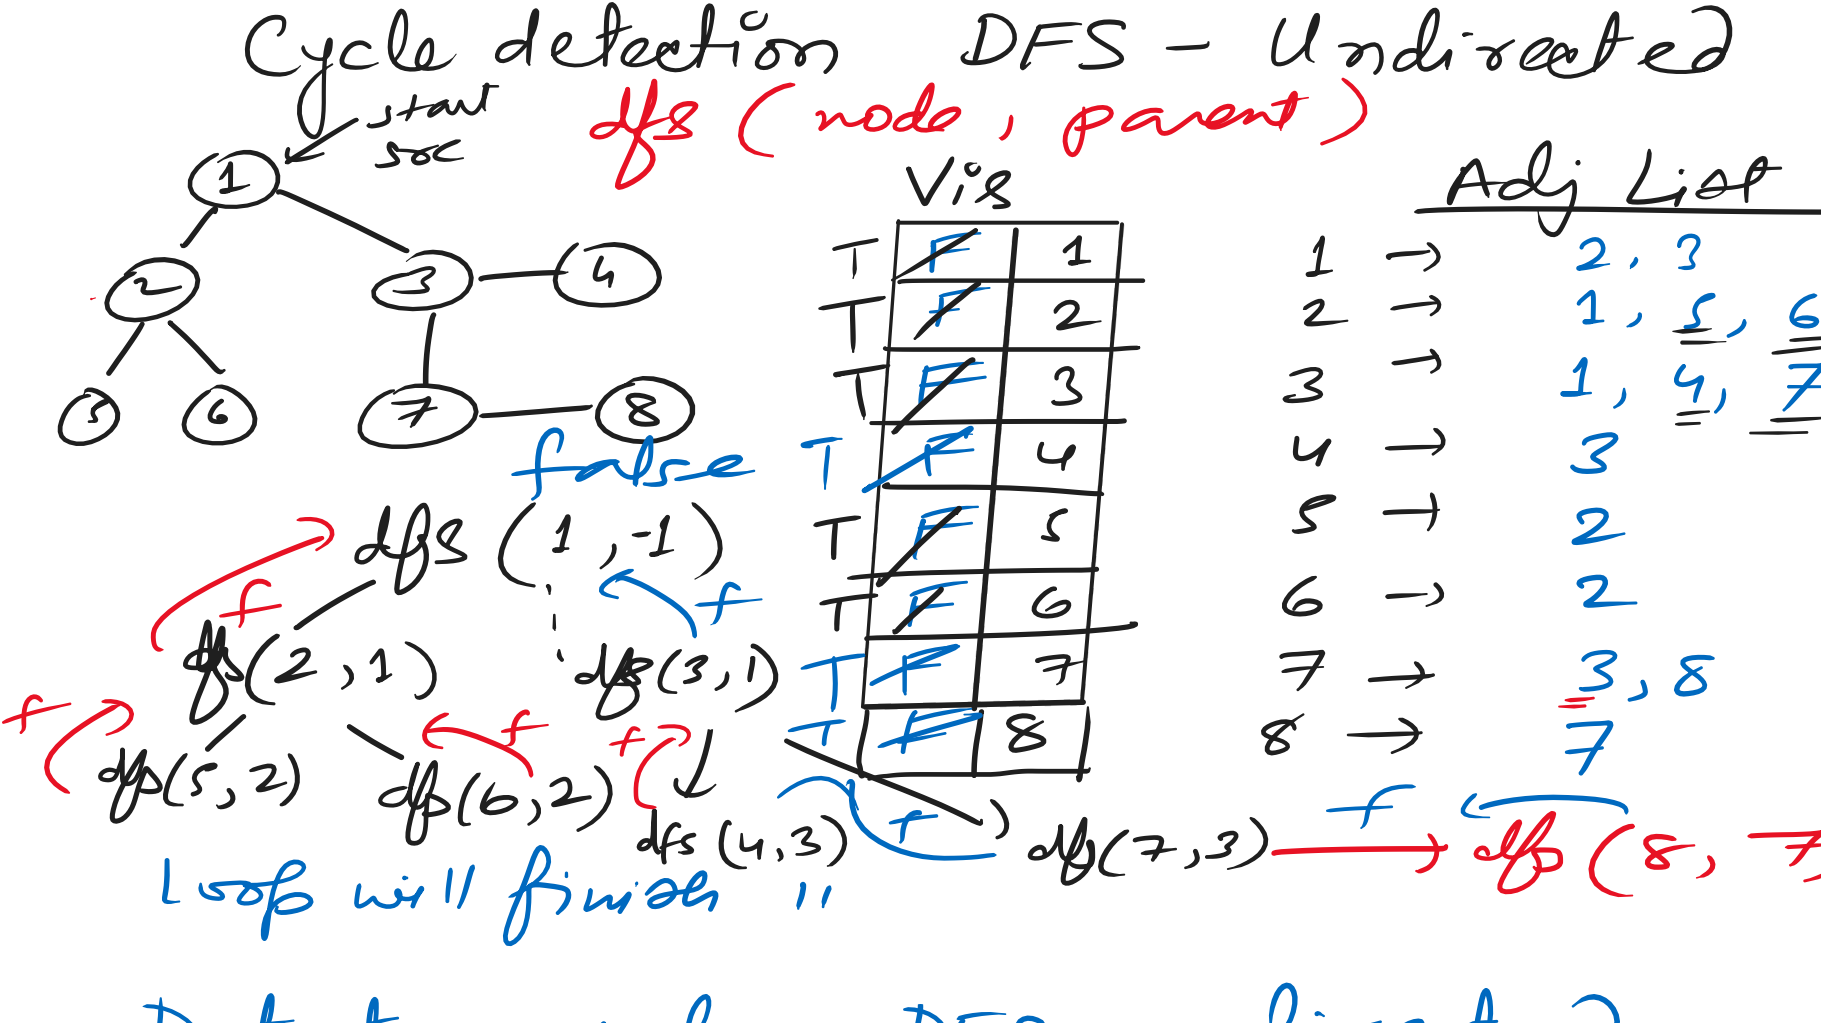 Cycle detection DFS - Undirected
start
src
dfs (node, parent)
1
2
3
4
5
6
7
8
Vis
T F 1
T F 2
T F 3
T F 4
T F 5
T F 6
T F 7
T F 8
Adj List
1 → 2, 3
2 → 1, 5, 6
3 → 1, 4, 7
4 → 3
5 → 2
6 → 2
7 → 3, 8
8 → 7
false
dfs (1, -1)
f
f
dfs(2, 1)
dfs(3, 1)
f
f
f
dfs(5, 2)
dfs(6, 2)
dfs (4, 3)
f
dfs(7, 3)
f
dfs (8, 7
Loop will finish "